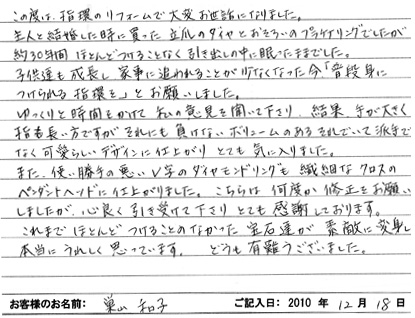 この度は、指環のリフォームで大変お世話になりました。
主人と結婚した時に買った立爪のダイヤとおそろいのプラチナリングでしたが
約30年間ほとんどつけることなく引き出しの中に眠ったままでした。
子供達も成長し家事に追われることが少なくなった今「普段身に
つけられる指環を」とお願いしました。
ゆっくりと時間をかけて私の意見を聞いて下さり、結果、手が大きく
指も長い方ですがそれにも負けないボリュームのあるそれでいて派手で
なく可愛らしいデザインに仕上がりとても気に入りました。
また、使い勝手の悪いV字のダイヤモンドリングも繊細なクロスの
ペンダントヘッドに仕上がりました。こちらは何度か修正をお願い
しましたが、心良く引き受けて下さりとても感謝しております。
これまでほとんどつけることのなかった宝石達が素敵に変身し
本当にうれしく思っています。どうも有難うございました。
お客様のお名前: 巣山 和子 ご記入日: 2010 年 12 月 18 日